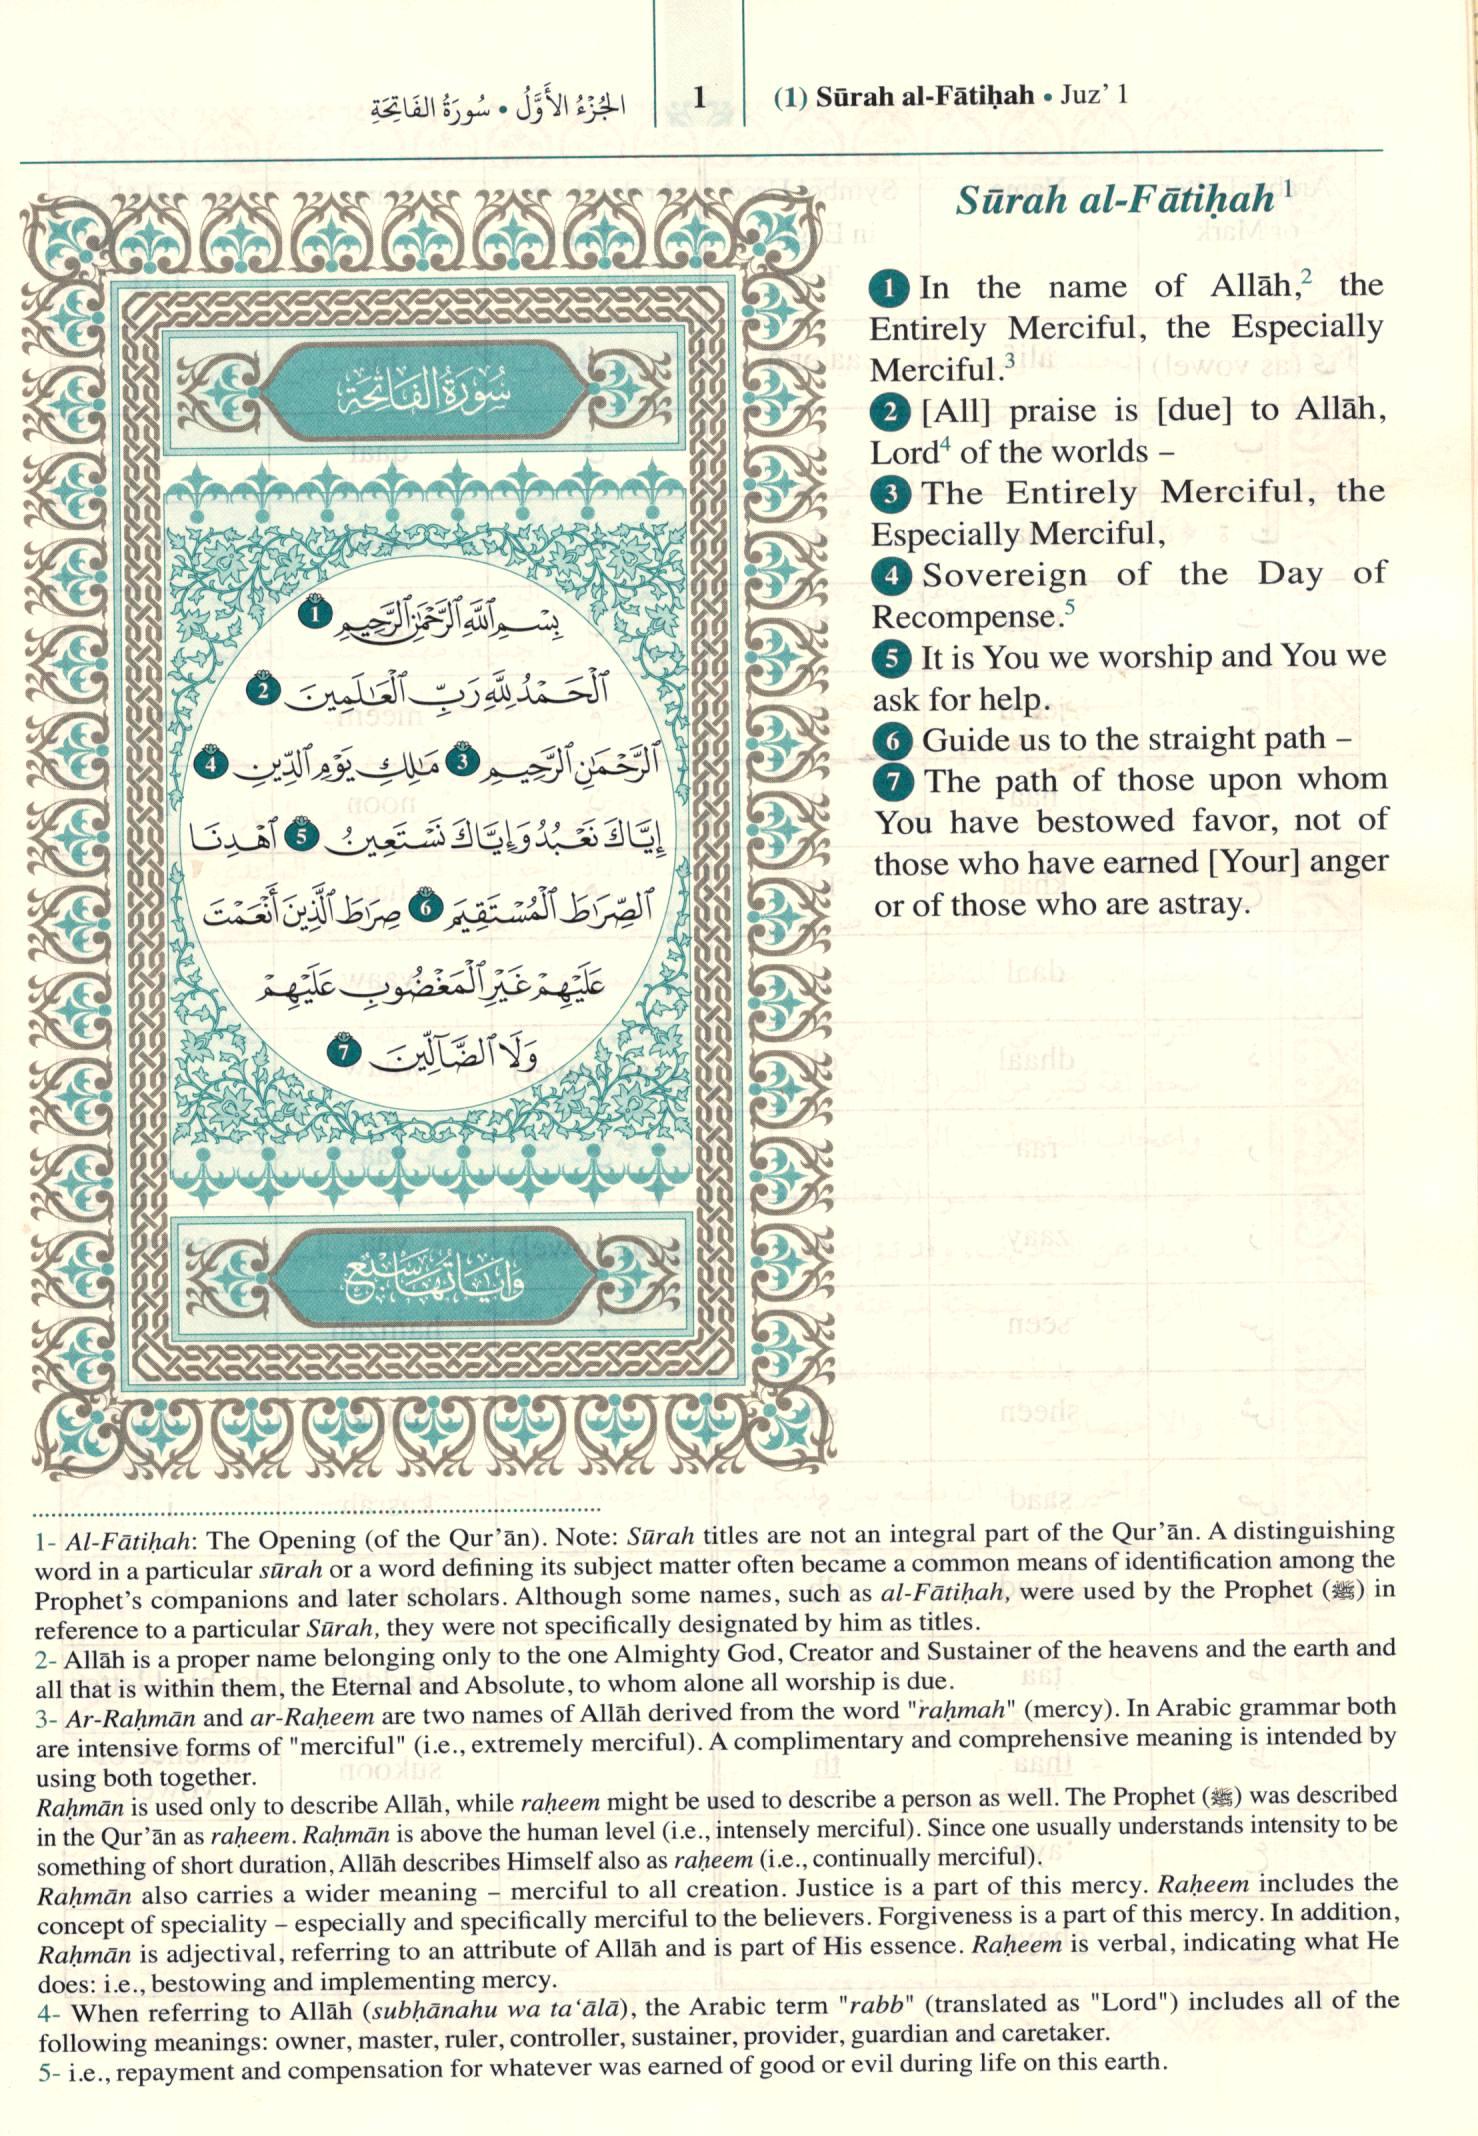 الجُزْءُ الأَوَّلُ • سُورَةُ الفَاتِحَةِ
1
(1) Sūrah al-Fātiḥah • Juz’ 1
سُورَةُ الفَاتِحَةِ
بِسْمِ ٱللَّهِ ٱلرَّحْمَٰنِ ٱلرَّحِيمِ 1
ٱلْحَمْدُ لِلَّهِ رَبِّ ٱلْعَٰلَمِينَ 2
ٱلرَّحْمَٰنِ ٱلرَّحِيمِ 3 مَٰلِكِ يَوْمِ ٱلدِّينِ 4
إِيَّاكَ نَعْبُدُ وَإِيَّاكَ نَسْتَعِينُ 5 ٱهْدِنَا
ٱلصِّرَٰطَ ٱلْمُسْتَقِيمَ 6 صِرَٰطَ ٱلَّذِينَ أَنْعَمْتَ
عَلَيْهِمْ غَيْرِ ٱلْمَغْضُوبِ عَلَيْهِمْ
وَلَا ٱلضَّآلِّينَ 7
وَآيَاتُهَا سَبْعٌ
Sūrah al-Fātiḥah¹
1 In the name of Allāh,² the
Entirely Merciful, the Especially
Merciful.³
2 [All] praise is [due] to Allāh,
Lord⁴ of the worlds –
3 The Entirely Merciful, the
Especially Merciful,
4 Sovereign of the Day of
Recompense.⁵
5 It is You we worship and You we
ask for help.
6 Guide us to the straight path –
7 The path of those upon whom
You have bestowed favor, not of
those who have earned [Your] anger
or of those who are astray.
1- Al-Fātiḥah: The Opening (of the Qur’ān). Note: Sūrah titles are not an integral part of the Qur’ān. A distinguishing
word in a particular sūrah or a word defining its subject matter often became a common means of identification among the
Prophet’s companions and later scholars. Although some names, such as al-Fātiḥah, were used by the Prophet (ﷺ) in
reference to a particular Sūrah, they were not specifically designated by him as titles.
2- Allāh is a proper name belonging only to the one Almighty God, Creator and Sustainer of the heavens and the earth and
all that is within them, the Eternal and Absolute, to whom alone all worship is due.
3- Ar-Raḥmān and ar-Raḥeem are two names of Allāh derived from the word "raḥmah" (mercy). In Arabic grammar both
are intensive forms of "merciful" (i.e., extremely merciful). A complimentary and comprehensive meaning is intended by
using both together.
Raḥmān is used only to describe Allāh, while raḥeem might be used to describe a person as well. The Prophet (ﷺ) was described
in the Qur’ān as raḥeem. Raḥmān is above the human level (i.e., intensely merciful). Since one usually understands intensity to be
something of short duration, Allāh describes Himself also as raḥeem (i.e., continually merciful).
Raḥmān also carries a wider meaning – merciful to all creation. Justice is a part of this mercy. Raḥeem includes the
concept of speciality – especially and specifically merciful to the believers. Forgiveness is a part of this mercy. In addition,
Raḥmān is adjectival, referring to an attribute of Allāh and is part of His essence. Raḥeem is verbal, indicating what He
does: i.e., bestowing and implementing mercy.
4- When referring to Allāh (subḥānahu wa ta‘ālā), the Arabic term "rabb" (translated as "Lord") includes all of the
following meanings: owner, master, ruler, controller, sustainer, provider, guardian and caretaker.
5- i.e., repayment and compensation for whatever was earned of good or evil during life on this earth.